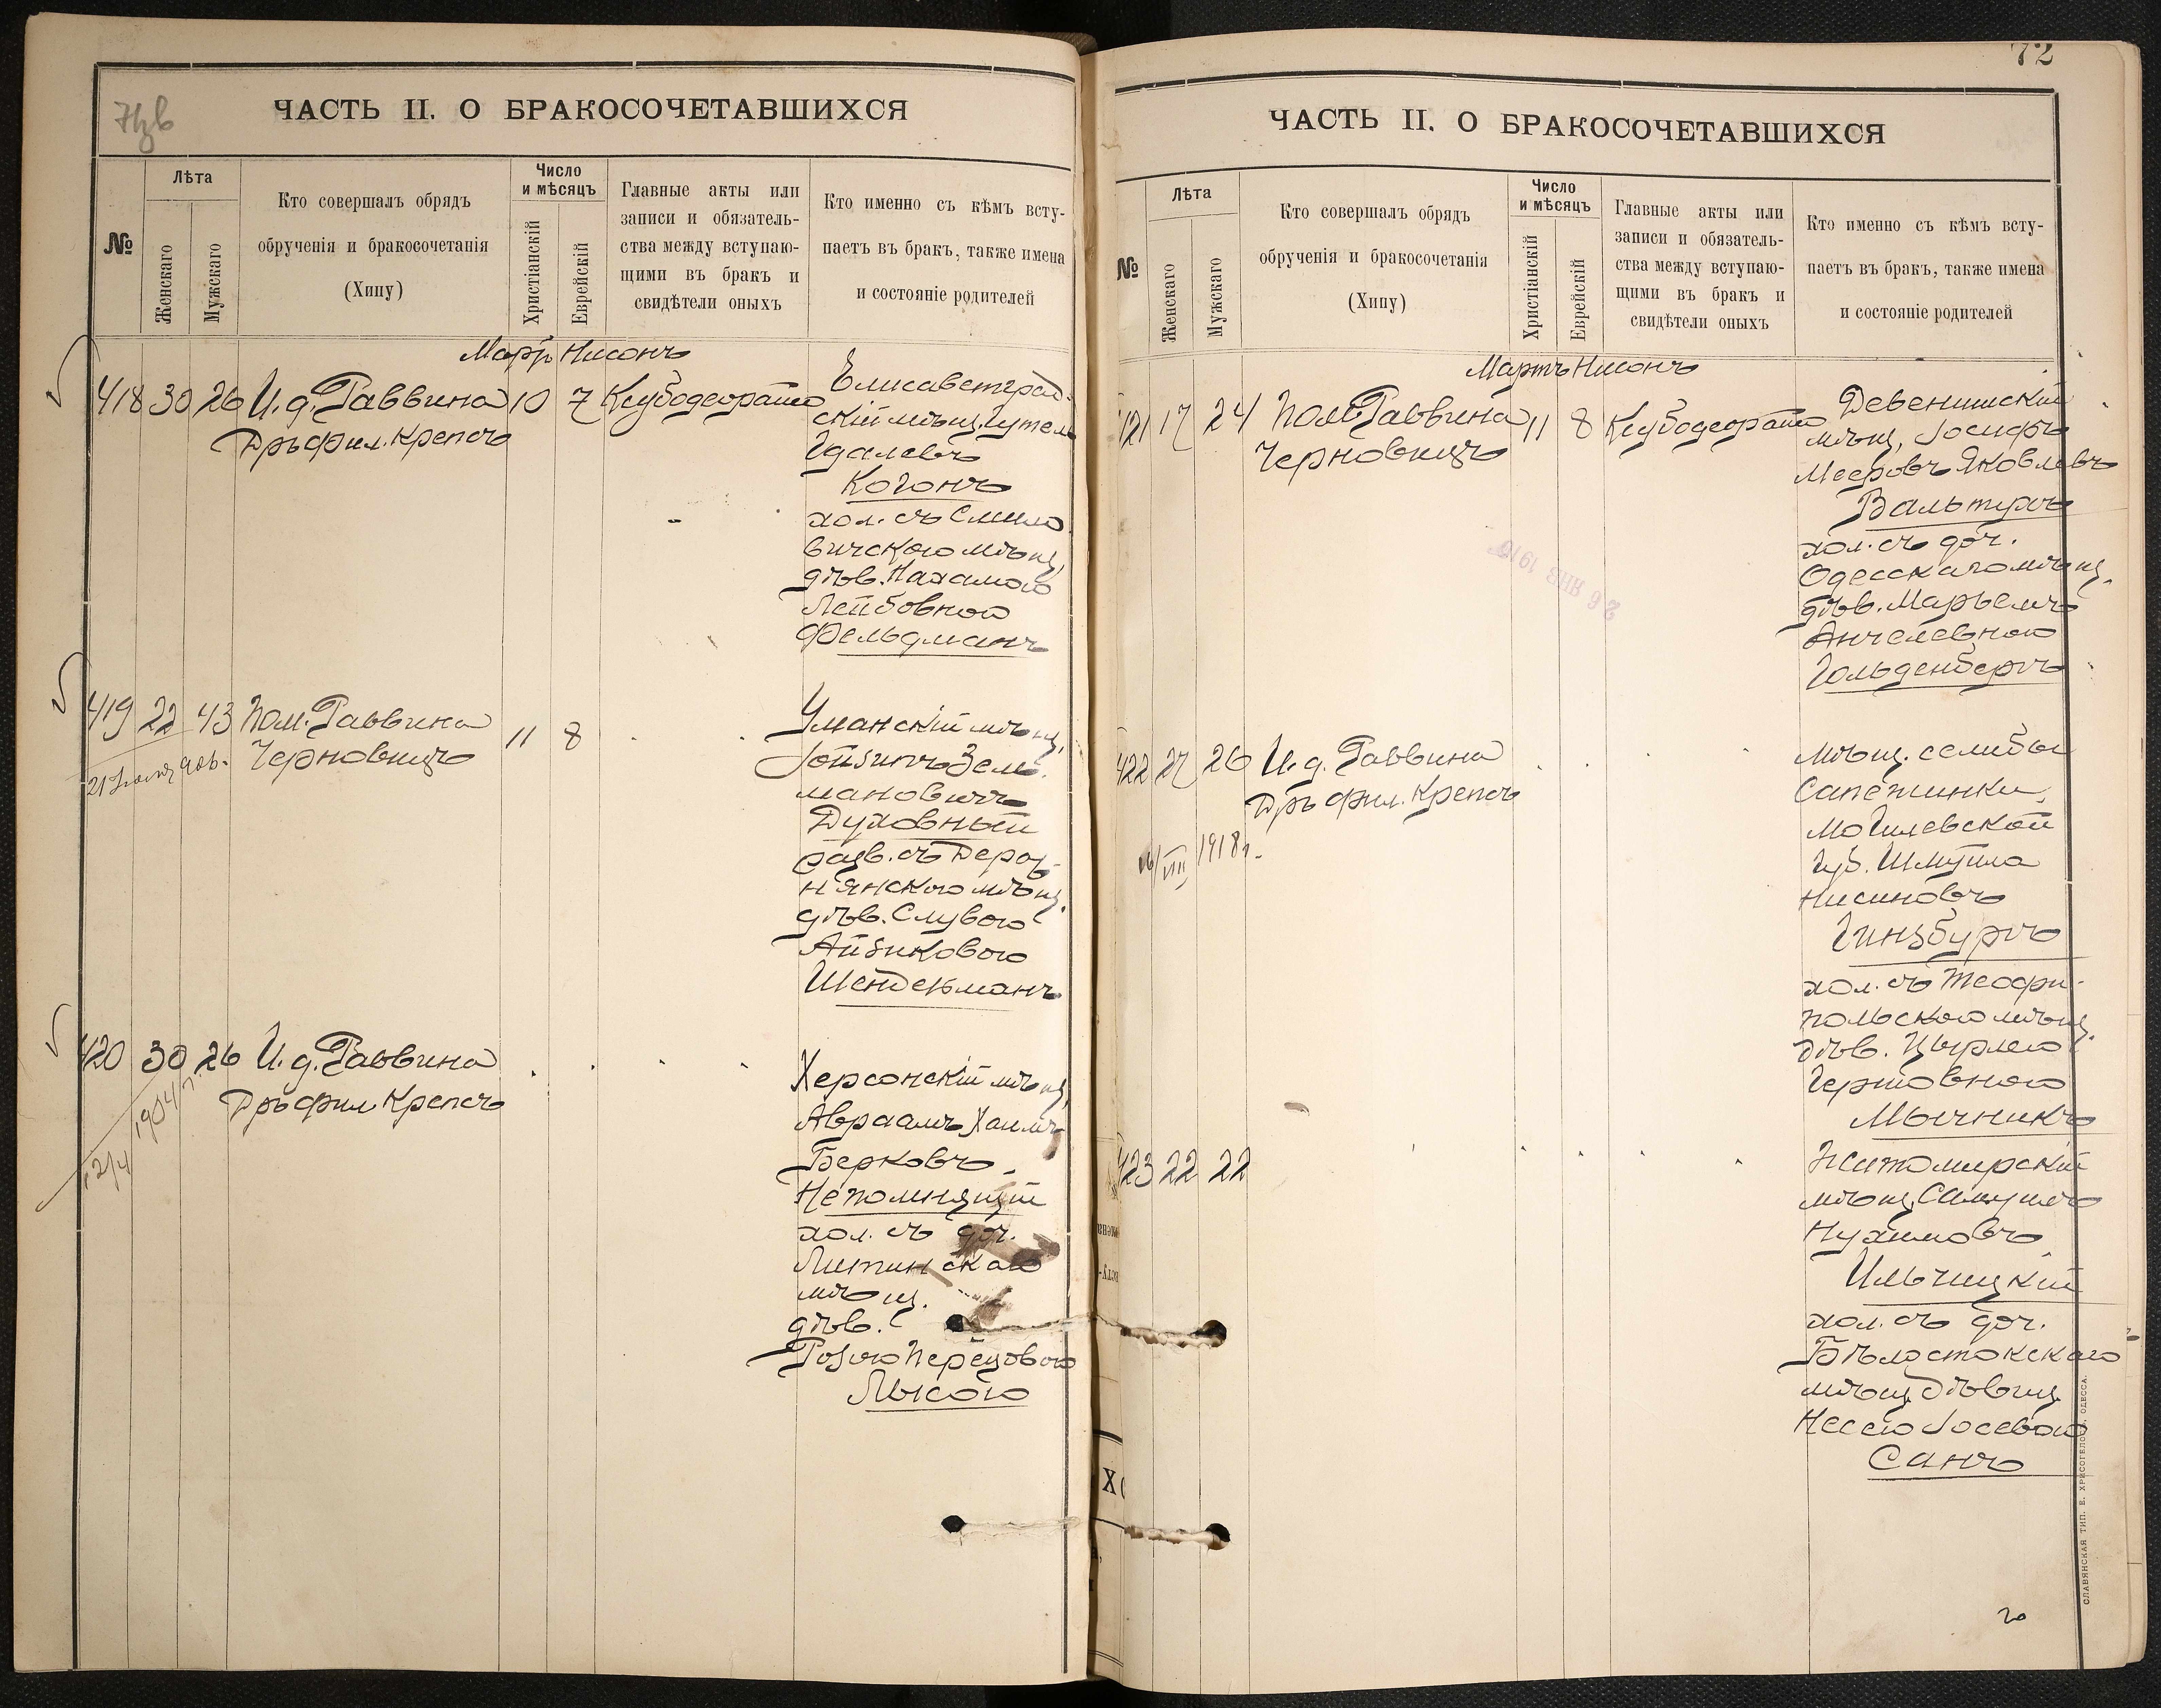 ЧАСТЬ II. О БРАКОСОЧЕТАВШИХСЯ
№
Лѣта
Женскаго
Мужскаго
Кто совершалъ обрядъ
обрученія и бракосочетанія
(Хипу)
Число
и мѣсяцъ
Христіанскій
Еврейскій
Главные акты или
записи и обязатель-
ства между вступаю-
щими въ бракъ и
свидѣтели оныхъ
Кто именно съ кѣмъ всту-
паетъ въ бракъ, также имена
и состояніе родителей
Мартъ Нисонъ
418 30 26 И. д. Раввина 10 7
Дръ фил. Крепсъ
Елисаветград-
скій мѣщ.
Идалевъ
Когонъ
хол. съ Смило
вичскою мѣщ.
дѣв. Нахамою
Лейбовною
Фельдманъ
419 22 43 Пом. Раввина 11 8
Черновицъ
Уманскій мѣщ.
Іойзипъ Зель
мановичъ
Духовный
разв. съ Дераж-
нянскою мѣщ.
дѣв. Слувою
Айзиковою
Шендельманъ
420 30 26 И. д. Раввина
Дръ фил. Крепсъ
Херсонскій мѣщ.
Авраамъ Хаимъ
Берковъ
Непомнящій
хол. съ доч.
Литинскаго
мѣщ.
дѣв.
Розою Перецовою
Лысою
72
ЧАСТЬ II. О БРАКОСОЧЕТАВШИХСЯ
№
Лѣта
Женскаго
Мужскаго
Кто совершалъ обрядъ
обрученія и бракосочетанія
(Хипу)
Число
и мѣсяцъ
Христіанскій
Еврейскій
Главные акты или
записи и обязатель-
ства между вступаю-
щими въ бракъ и
свидѣтели оныхъ
Кто именно съ кѣмъ всту-
паетъ въ бракъ, также имена
и состояніе родителей
Мартъ Нисонъ
421 17 24 Пом. Раввина 11 8
Черновицъ
Девенишскій
мѣщ. Іосифъ
Мееровъ Яковлевъ
Вальтухъ
хол. съ доч.
Одесскаго мѣщ.
дѣв. Марьемъ
Анчелевною
Гольденбергъ
422 27 26 И. д. Раввина
Дръ фил. Крепсъ
1918 г.
мѣщ. селибы
Сапежинки,
Могилевской
губ. Шмуила
Нисиновъ
Гинзбургъ
хол. съ Теофи-
польскою мѣщ.
дѣв. Цырлею
Гершовною
Мычникъ
423 22 22
Житомирскій
мѣщ. Самуилъ
Нухимовъ
Ильницкій
хол. съ доч.
Бѣлостокскаго
мѣщ. дѣвиц.
Нессею Іосевою
Санъ
СЛАВЯНСКАЯ ТИП. Е. ХРИСОГЕЛОСЪ, ОДЕССА.